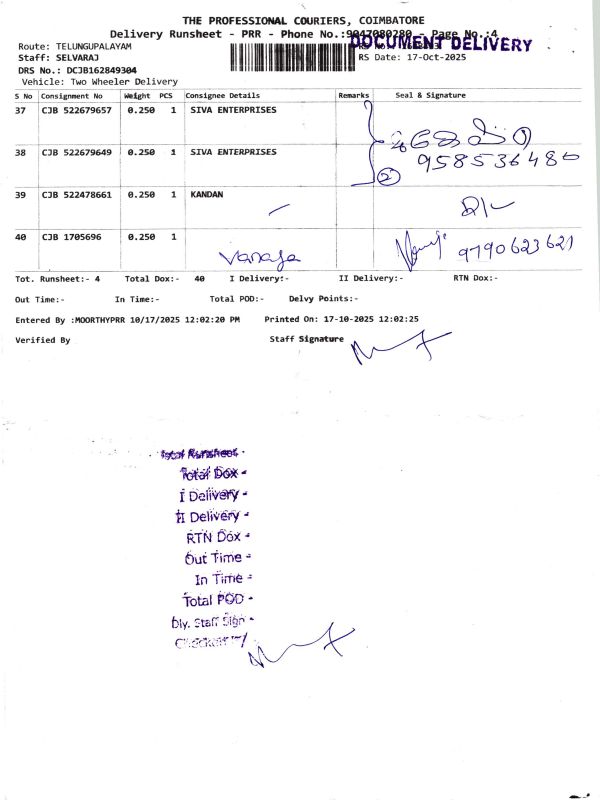 THE PROFESSIONAL COURIERS, COIMBATORE
Delivery Runsheet - PRR - Phone No.:9047080280 - Page No.:4
DOCUMENT DELIVERY
Route: TELUNGUPALAYAM
Staff: SELVARAJ RS Date: 17-Oct-2025
DRS No.: DCJB162849304
Vehicle: Two Wheeler Delivery
S No Consignment No Weight PCS Consignee Details Remarks Seal & Signature
37 CJB 522679657 0.250 1 SIVA ENTERPRISES
38 CJB 522679649 0.250 1 SIVA ENTERPRISES
② 958536480
39 CJB 522478661 0.250 1 KANDAN
40 CJB 1705696 0.250 1
Vanaja 9790623621
Tot. Runsheet:- 4 Total Dox:- 40 I Delivery:- II Delivery:- RTN Dox:-
Out Time:- In Time:- Total POD:- Delvy Points:-
Entered By :MOORTHYPRR 10/17/2025 12:02:20 PM Printed On: 17-10-2025 12:02:25
Verified By Staff Signature
Total Runsheet -
Total Dox -
I Delivery -
II Delivery -
RTN Dox -
Out Time -
In Time -
Total POD -
Dly. Staff Sign -